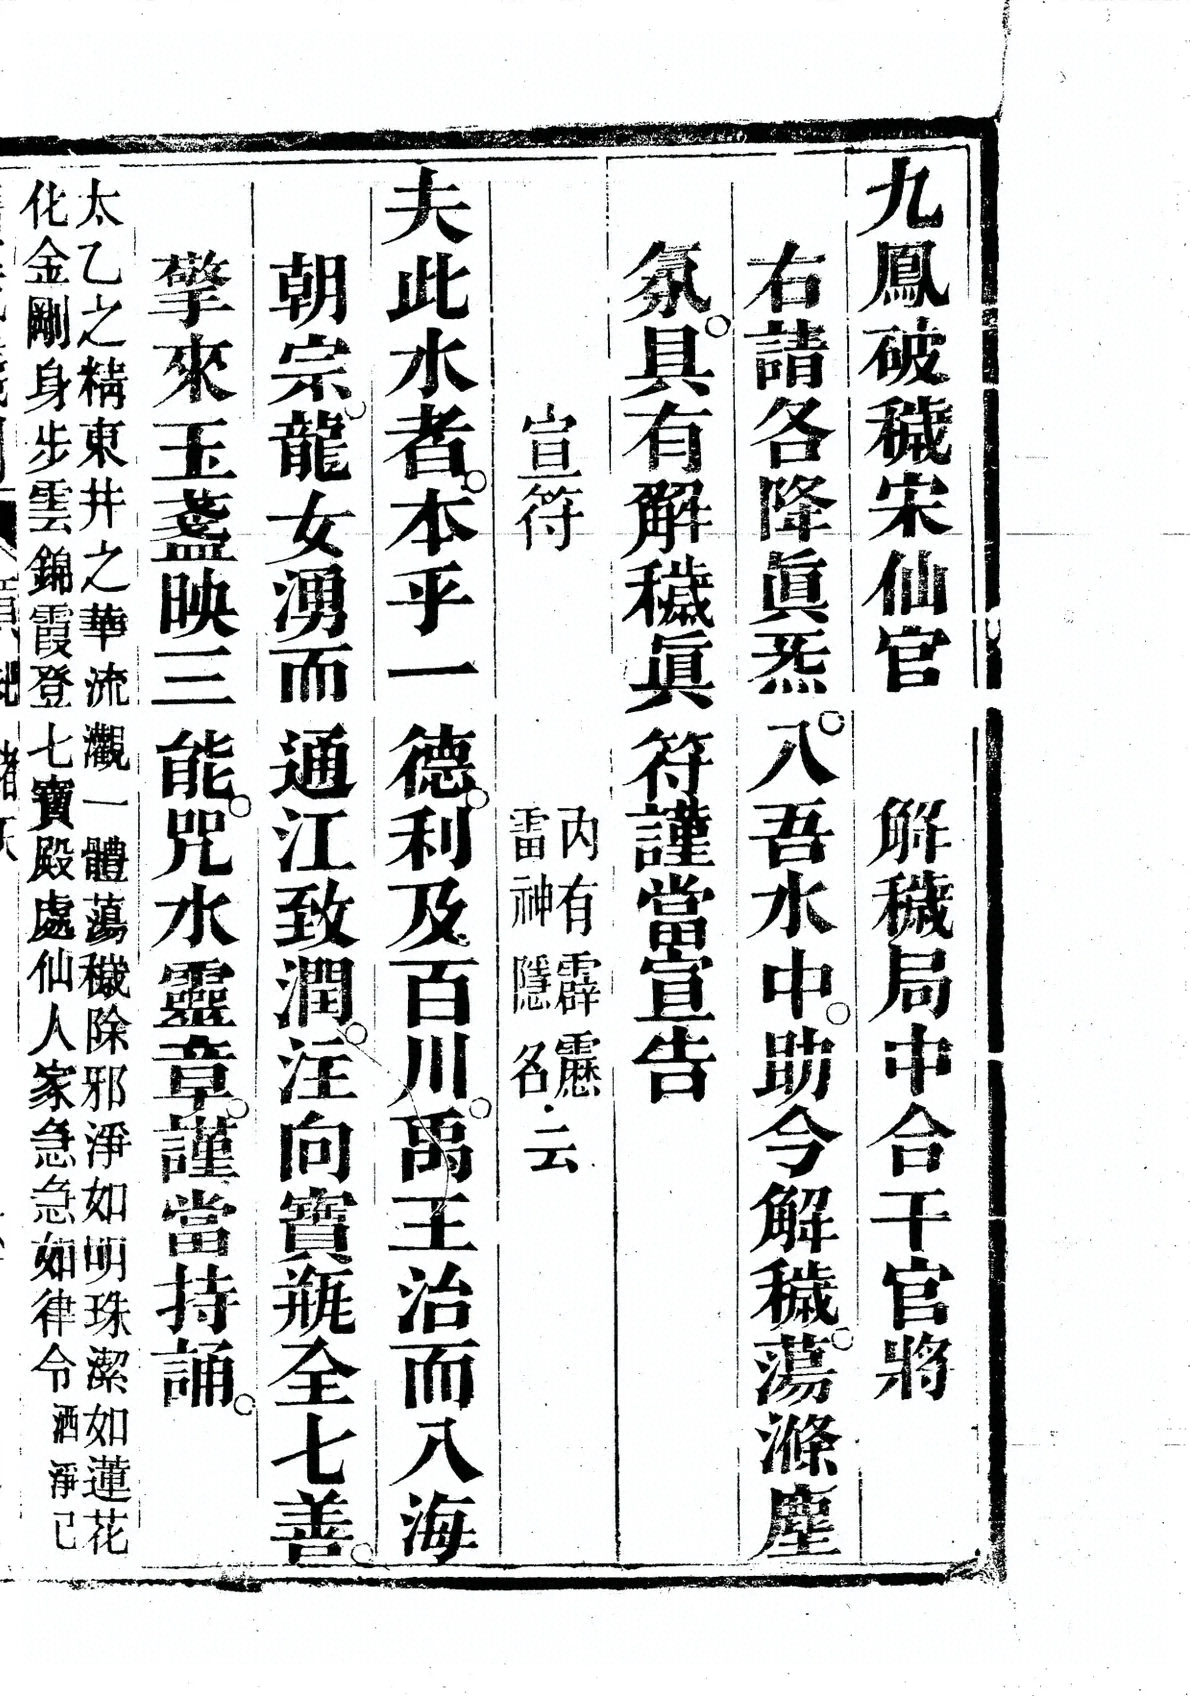 九鳳破穢宋仙官　解穢局中合干官將
右請各降眞炁○八吾水中○助今解穢○蕩滌塵
氛○具有解穢眞符謹當宣告
宣符　內有霹靂
雷神隱名·云
夫此水者○本乎一德○利及百川○禹王治而八海
朝宗○龍女湧而通江致潤○注向寶瓶全七善○
擎來玉盞映三能○咒水靈章○謹當持誦○
太乙之精東井之華流灟一體蕩穢除邪淨如明珠潔如蓮花
化金剛身步雲錦霞登七寶殿處仙人家急急如律令洒淨已